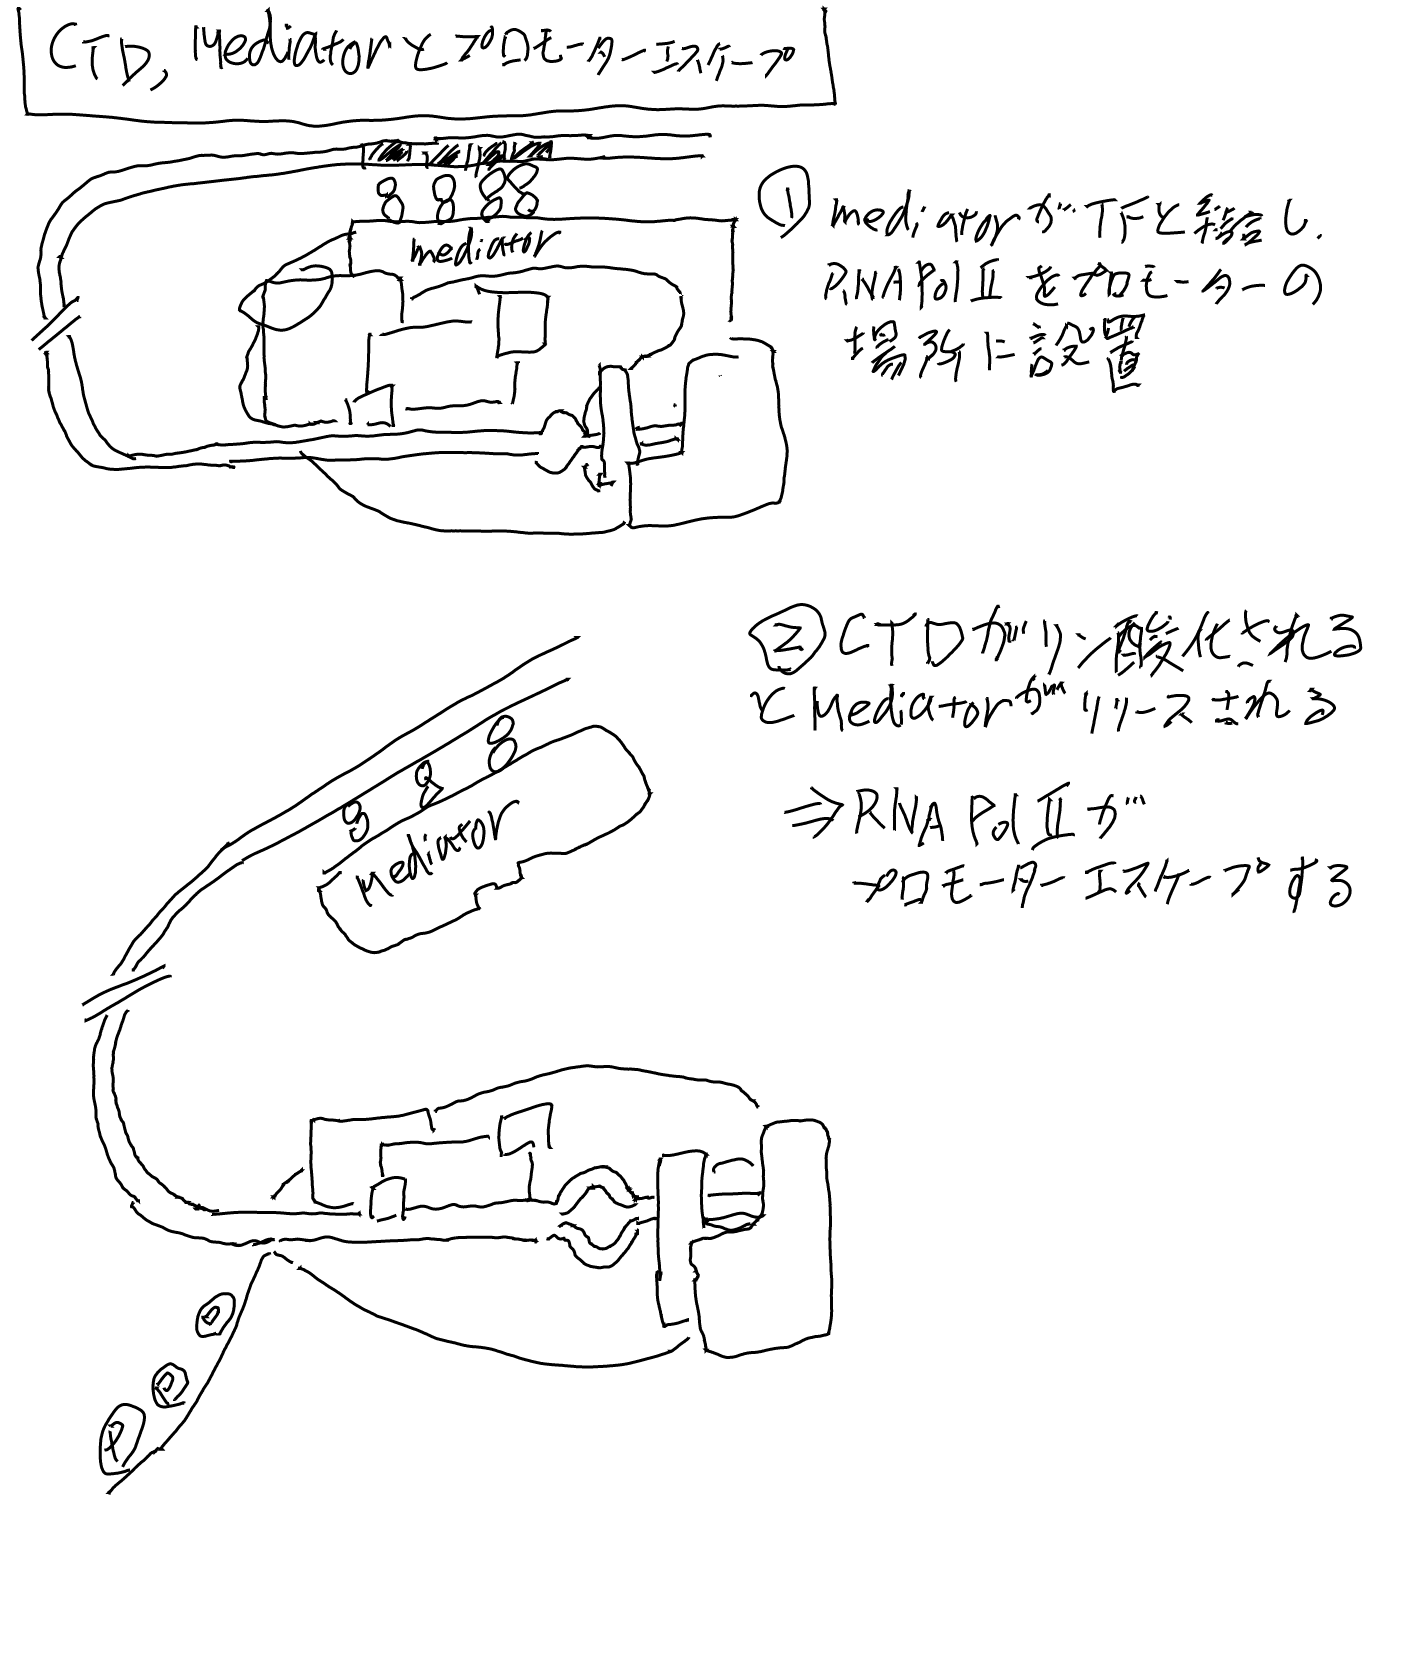 CTD, Mediatorとプロモーターエスケープ
mediator
① mediatorがTFと結合し.
RNA Pol Ⅱ をプロモーターの
場所に設置
② CTDがリン酸化される
とMediatorがリリースされる
⇒ RNA Pol Ⅱ が
プロモーターエスケープする
Mediator
P
P
P